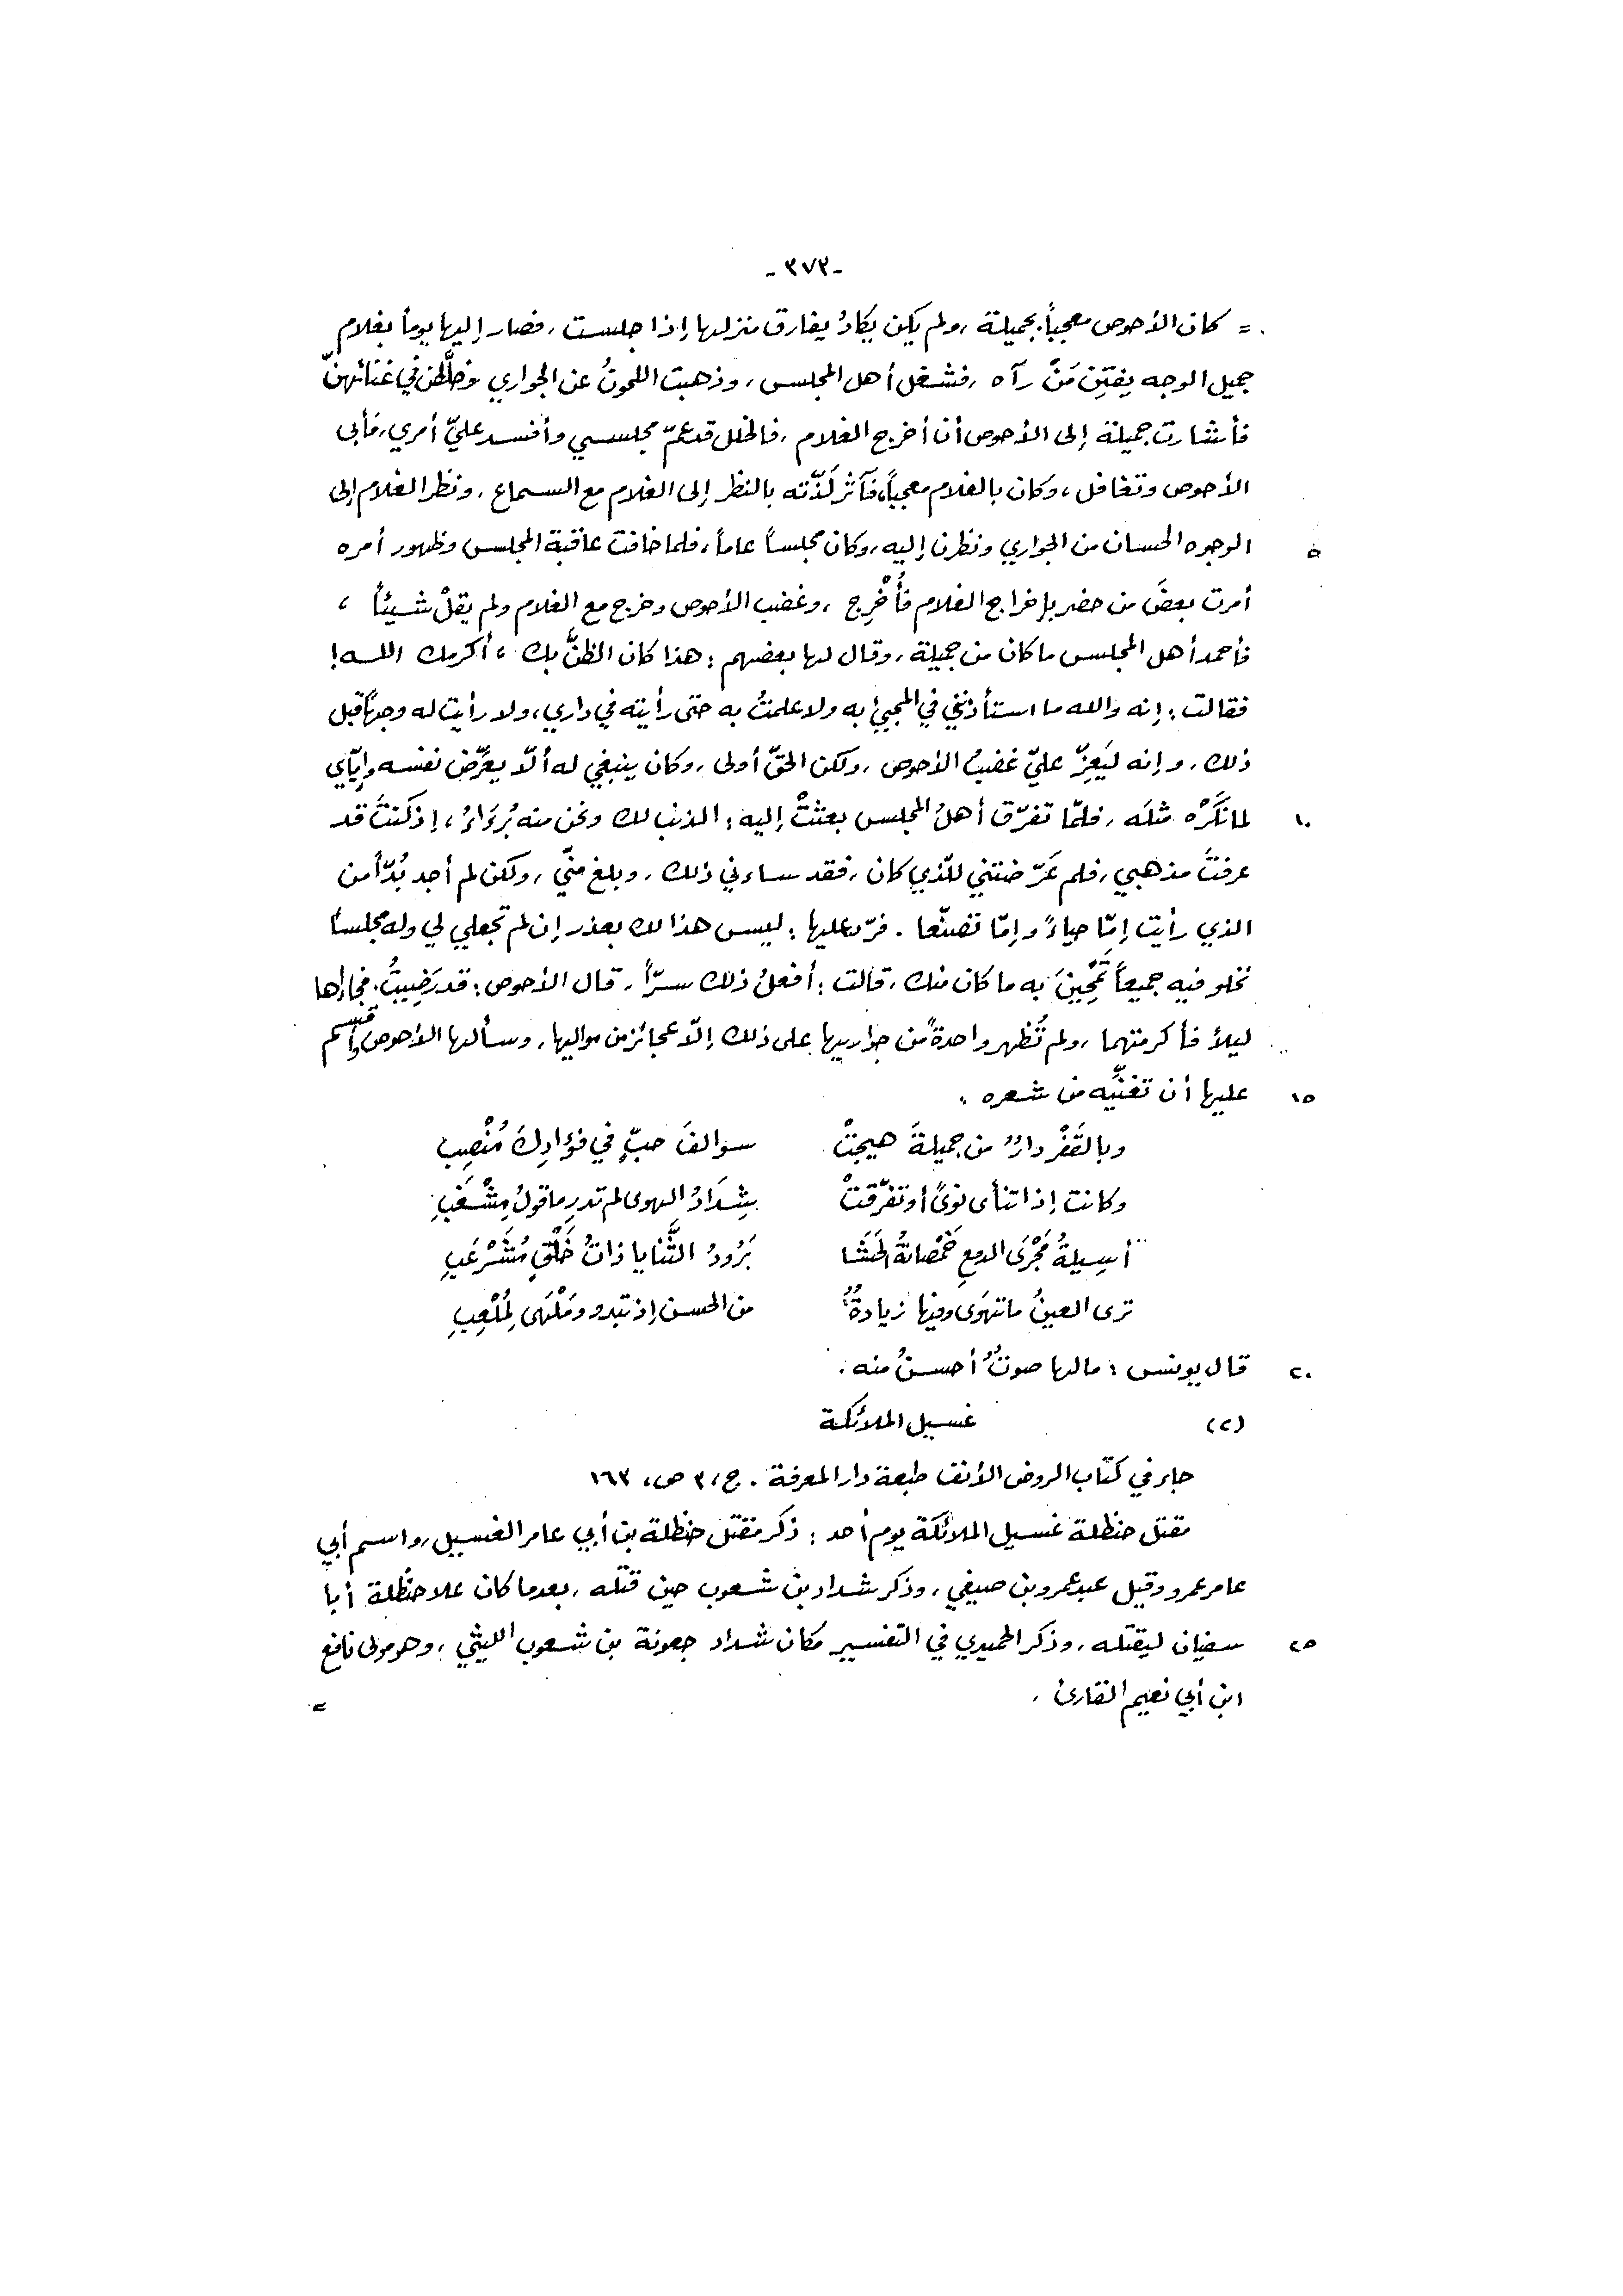 - ٣٧٣ -
= كان الأحوص معجباً بجميلة ، ولم يكن يكادُ يفارق منزلها إذا جلست ، فصار إليها يوماً بغلام
جميل الوجه يفتِن مَنْ رآه ، فشغل أهل المجلس ، وذهبت اللحونُ عن الجواري وخلَّطن في غنائهنّ
فأشارت جميلة إلى الأحوص أن أخرج الغلام ، فالخلل قد عمّ مجلسي وأفسد عليّ أمري ، فأبى
الأحوص وتغافل ، وكان بالغلام معجباً، فآثر لَذّته بالنظر إلى الغلام مع السماع ، ونظر الغلام إلى
٥ الوجوه الحسان من الجواري ونظرن إليه ، وكان مجلساً عاماً ، فلما خافت عاقبة المجلس وظهور أمره
أمرت بعضَ من حضر بإخراج الغلام فأُخْرِج ، وغضب الأحوص وخرج مع الغلام ولم يقلْ شيئاً ،
فأحمد أهل المجلس ما كان من جميلة ، وقال لها بعضهم : هذا كان الظنَّ بك ، أكرمك الله !
فقالت : إنه والله ما استأذنني في المجيئ به ولا علمتُ به حتى رأيته في داري ، ولا رأيت له وجهاً قبل
ذلك ، وإنه ليَعِزّ عليّ غضبُ الأحوص ، ولكن الحقّ أولى ، وكان ينبغي له ألاّ يعَرِّض نفسه وإيّاي
١٠ لما نَكْرَه مثلَه ، فلمّا تفرّق أهلُ المجلس بعثتْ إليه : الذنب لك ونحن منه بُرَءَاءُ ، إذ كنتَ قد
عرفتَ مذهبي ، فلم عَرّضتني للّذي كان ، فقد ساءني ذلك ، وبلغ منّي ، ولكن لم أجد بُدّاً من
الذي رأيت إمّا حياءً وإمّا تصنّعا . فردّ عليها : ليس هذا لك بعذر إن لم تجعلي لي وله مجلساً
نخلو فيه جميعاً تَمْحِينَ به ما كان منك ، قالت : أفعلُ ذلك سرّاً ، قال الأحوص : قد رَضِيتُ. فجاءاها
ليلاً فأكرمتهما ، ولم تُظهر واحدةً من جواريها على ذلك إلاّ عجائز من مواليها ، وسألها الأحوص وأقسم
١٥ عليها أن تغنّيَه من شعره .
وبالقَفْر دارٌ من جميلةَ هيجتْ سوالفَ حبٍّ في فؤادِكَ مُنْصِب
وكانت إذا تنأى نوىً أو تفرّقتْ شِدَادُ الهوى لم تدرِ ما قولُ مِشْغَبِ
أسِيلةُ مَجْرَى الدمعِ خَمْصانةُ الحَشَا بَرُودُ الثَّنايا ذاتُ خَلْقٍ مُشَرْعَبِ
ترى العينُ ما تهوَى وفيها زيادةٌ من الحسن إذ تبدو ومَلْهَى لِمُلْعِبِ
٢٠ قال يونس : مالها صوتٌ أحسنُ منه .
(٢) غسيل الملائكة
جاء في كتاب الروض الأنف طبعة دار المعرفة . ج، ٣ ص، ١٦٣
مقتل حنظلة غسيل الملائكة يوم أحد : ذكر مقتل حنظلة بن أبي عامر الغسيل ، واسم أبي
عامر عمرو وقيل عبد عمرو بن صيفي ، وذكر شداد بن شعوب حين قتله ، بعدما كان علا حنظلة أبا
٢٥ سفيان ليقتله ، وذكر الحميدي في التفسير مكان شداد جعونة بن شعوب الليثي ، وهو مولى نافع
ابن أبي نعيم القارئ . =